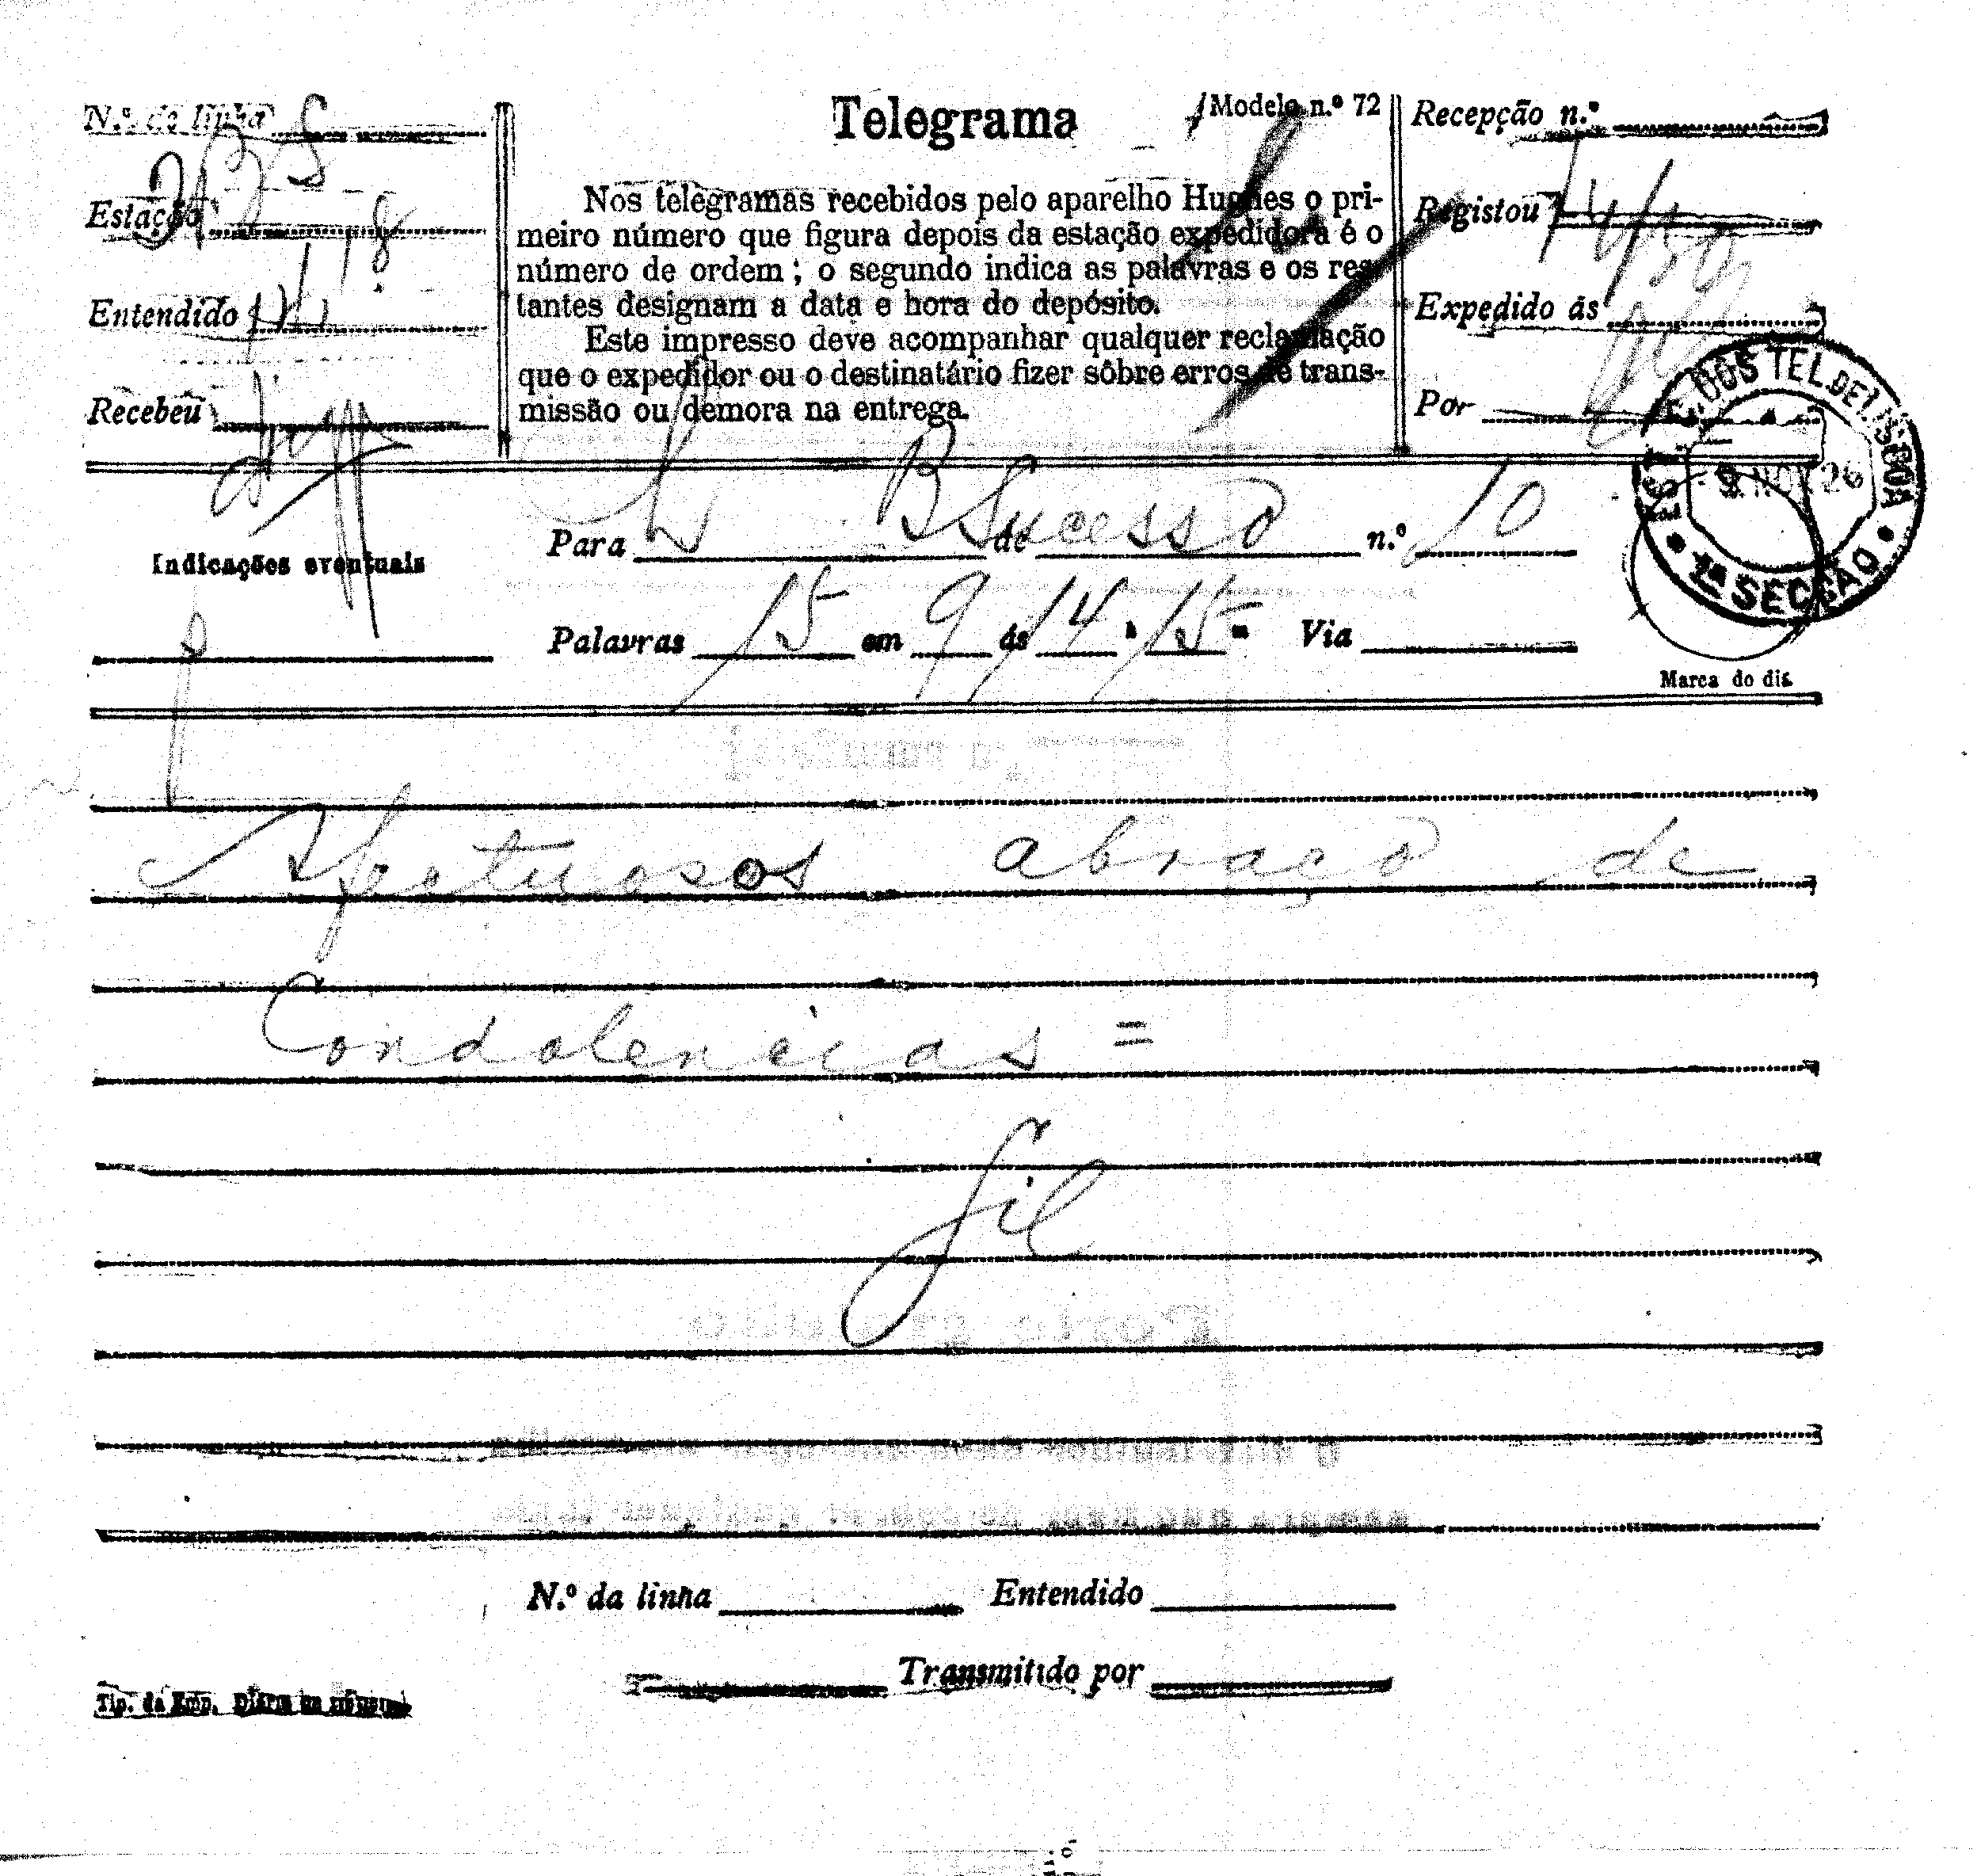 N.º de linha
Telegrama
Modelo n.º 72
Recepção n.º
Estação
Nos telegramas recebidos pelo aparelho Hughes o pri-
meiro número que figura depois da estação expedidora é o
número de ordem; o segundo indica as palavras e os res-
tantes designam a data e hora do depósito.
Registou
Entendido
Este impresso deve acompanhar qualquer reclamação
que o expedidor ou o destinatário fizer sôbre erros de trans-
missão ou demora na entrega.
Expedido ás
Recebeu
Por
EST. DOS TEL. DE LISBOA
9 NOV 26
1ª SECÇÃO
Indicações eventuais
Para B Sucesso de n.º 10
Palavras 15 em 9 ás 14 h 15 m Via
Marca do dia
Afectuosos abraço de
Condolencias =
Gil
N.º da linha Entendido
Transmitido por
Tip. da Emp.